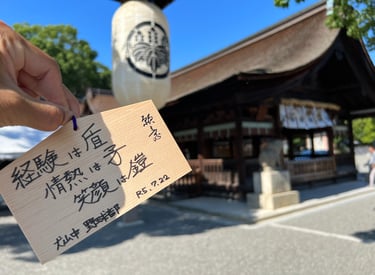 経験は盾
情熱は矛
笑顔は鎧
犬山中 野球部 R5.7.22